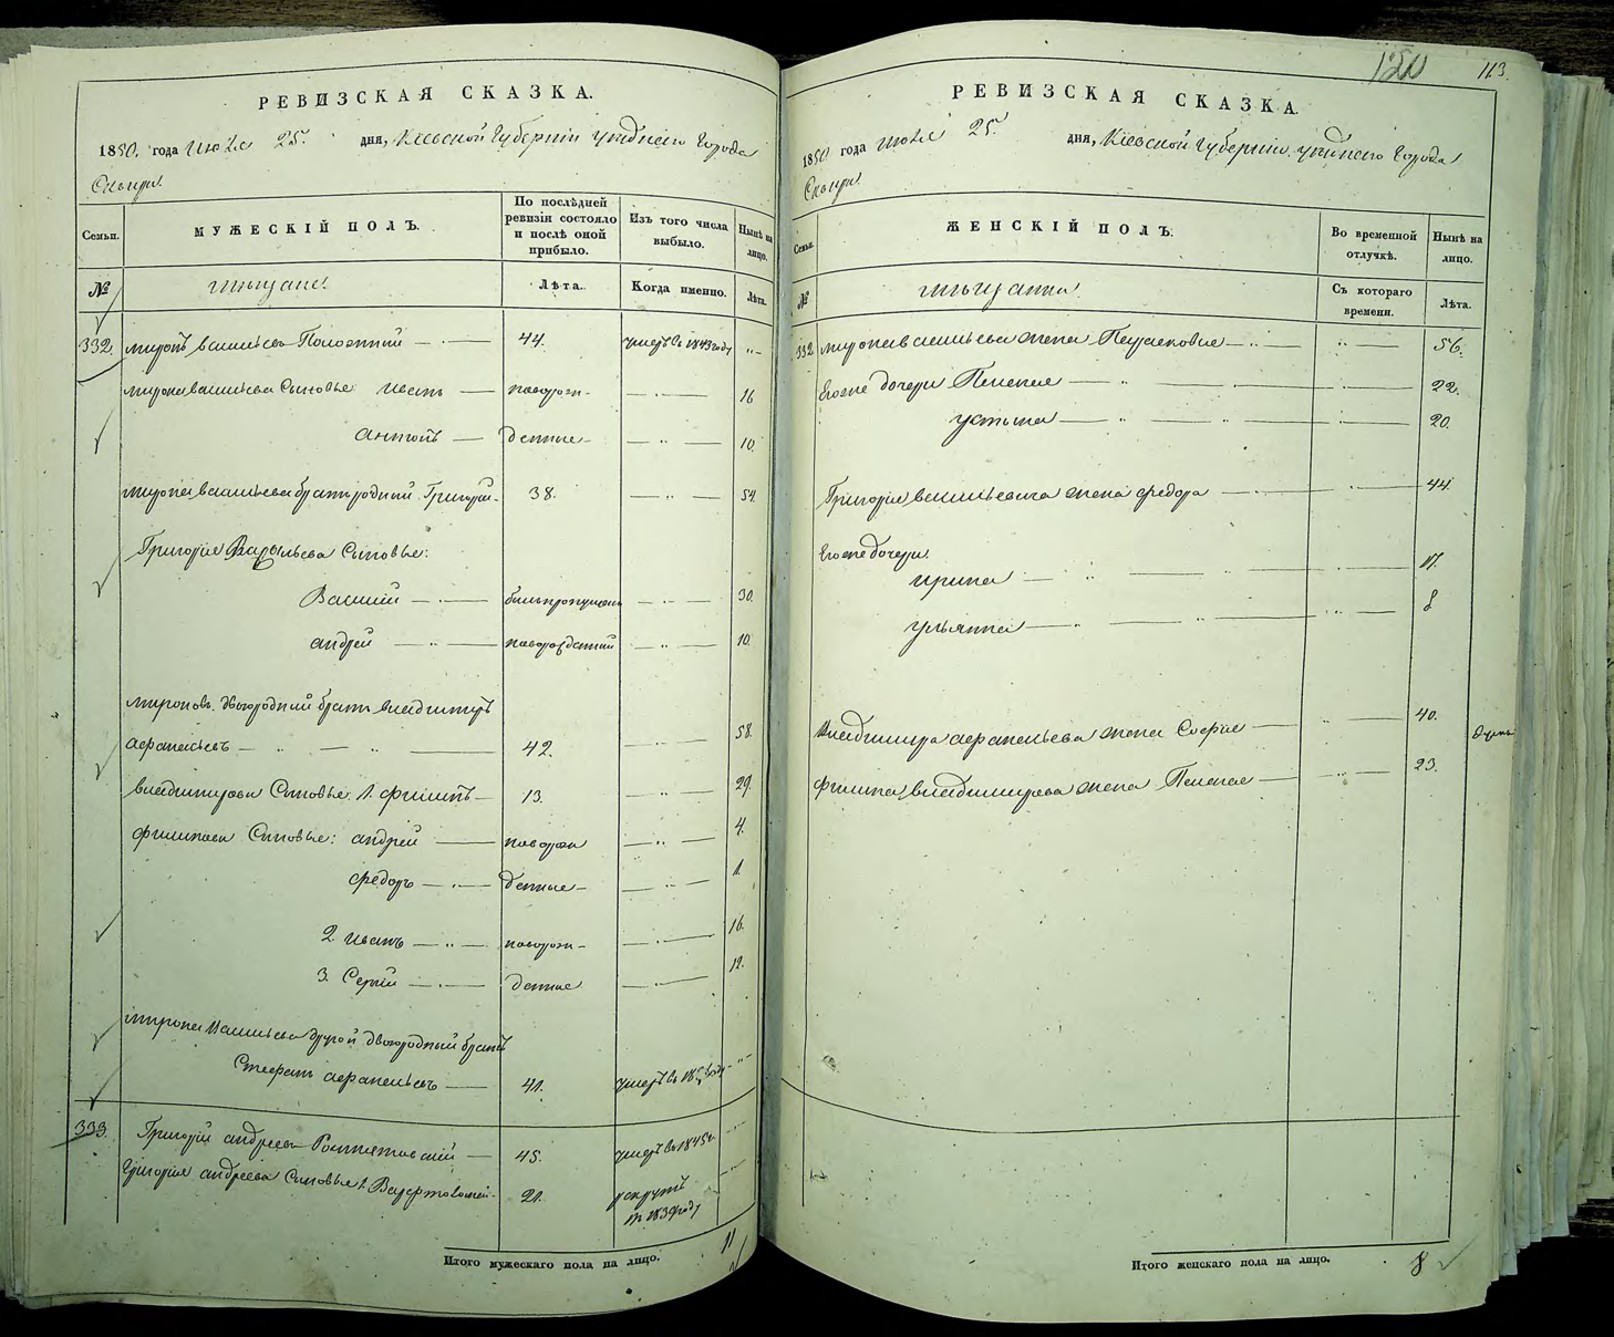 РЕВИЗСКАЯ СКАЗКА.
1850. года июля 25. дня, Кіевской Губерніи уѣднаго Города
Сквиры.
Семьи.
МУЖЕСКІЙ ПОЛЪ.
По послѣдней ревизіи состояло и послѣ оной прибыло.
Изъ того числа выбыло.
Нынѣ на лицо.
№
мѣщане.
Лѣта.
Когда именно.
Лѣта.
332. миронъ васильевъ 44. умеръ въ 1843 году
мирона васильева Сыновье иванъ новорож- 16
антонъ денные 10.
мирона васильева братъ родный Григорій 38. 54.
Григорія Васильева Сыновье:
Василій былъ пропущенъ 30.
андрей новорожденный 10.
мироновъ двоюродный братъ владимиръ
афанасьевъ 42. 58.
владимирови Сыновье: 1. филипъ 13. 29.
филипови Сыновье: андрей новорож 4.
федоръ денные 1.
2. иванъ новорож- 16.
3. Сергій денные 12.
мирона Васильева другой двоюродный братъ
Стефанъ афанасьевъ 41. умеръ въ
333. Григорій андреевъ 45. умеръ въ 1845 г.
Григорія андреева Сыновье 1. 21. рекрутъ
въ 1839 году
Итого мужескаго пола на лицо. 11
120 113.
РЕВИЗСКАЯ СКАЗКА.
1850 года июля 25. дня, Кіевской Губерніи, уѣднаго Города
Сквиры.
Семьи.
ЖЕНСКІЙ ПОЛЪ.
Во временной отлучкѣ.
Нынѣ на лицо.
№
мѣщанки.
Съ котораго времени.
Лѣта.
332 мирона васильева жена 56.
Егоже дочери Пелагея 22.
устина 20.
Григорія васильевича жена федора 44.
Егоже дочери
ирина 17.
ульянна 8
Владимира афанасьева жена Софія 40.
филипа владимирова жена Пелагея 23.
Итого женскаго пола на лицо. 8